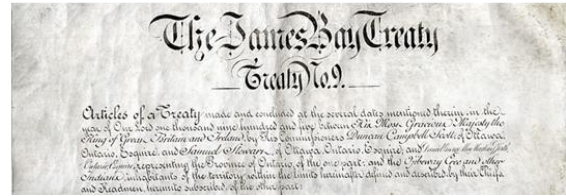 The James Bay Treaty
Treaty No. 9.
Articles of a Treaty made and concluded at the several dates mentioned therein, in the
year of Our Lord one thousand nine hundred and five between His Most Gracious Majesty the
King of Great Britain and Ireland, by His Commissioners Duncan Campbell Scott, of Ottawa,
Ontario, Esquire, and Samuel Stewart, of Ottawa, Ontario, Esquire, and
representing the Province of Ontario, of the one part; and the Ojibeway Cree and other
Indians inhabitants of the territory within the limits hereinafter defined and described, by their Chiefs
and Headmen hereunto subscribed, of the other part: